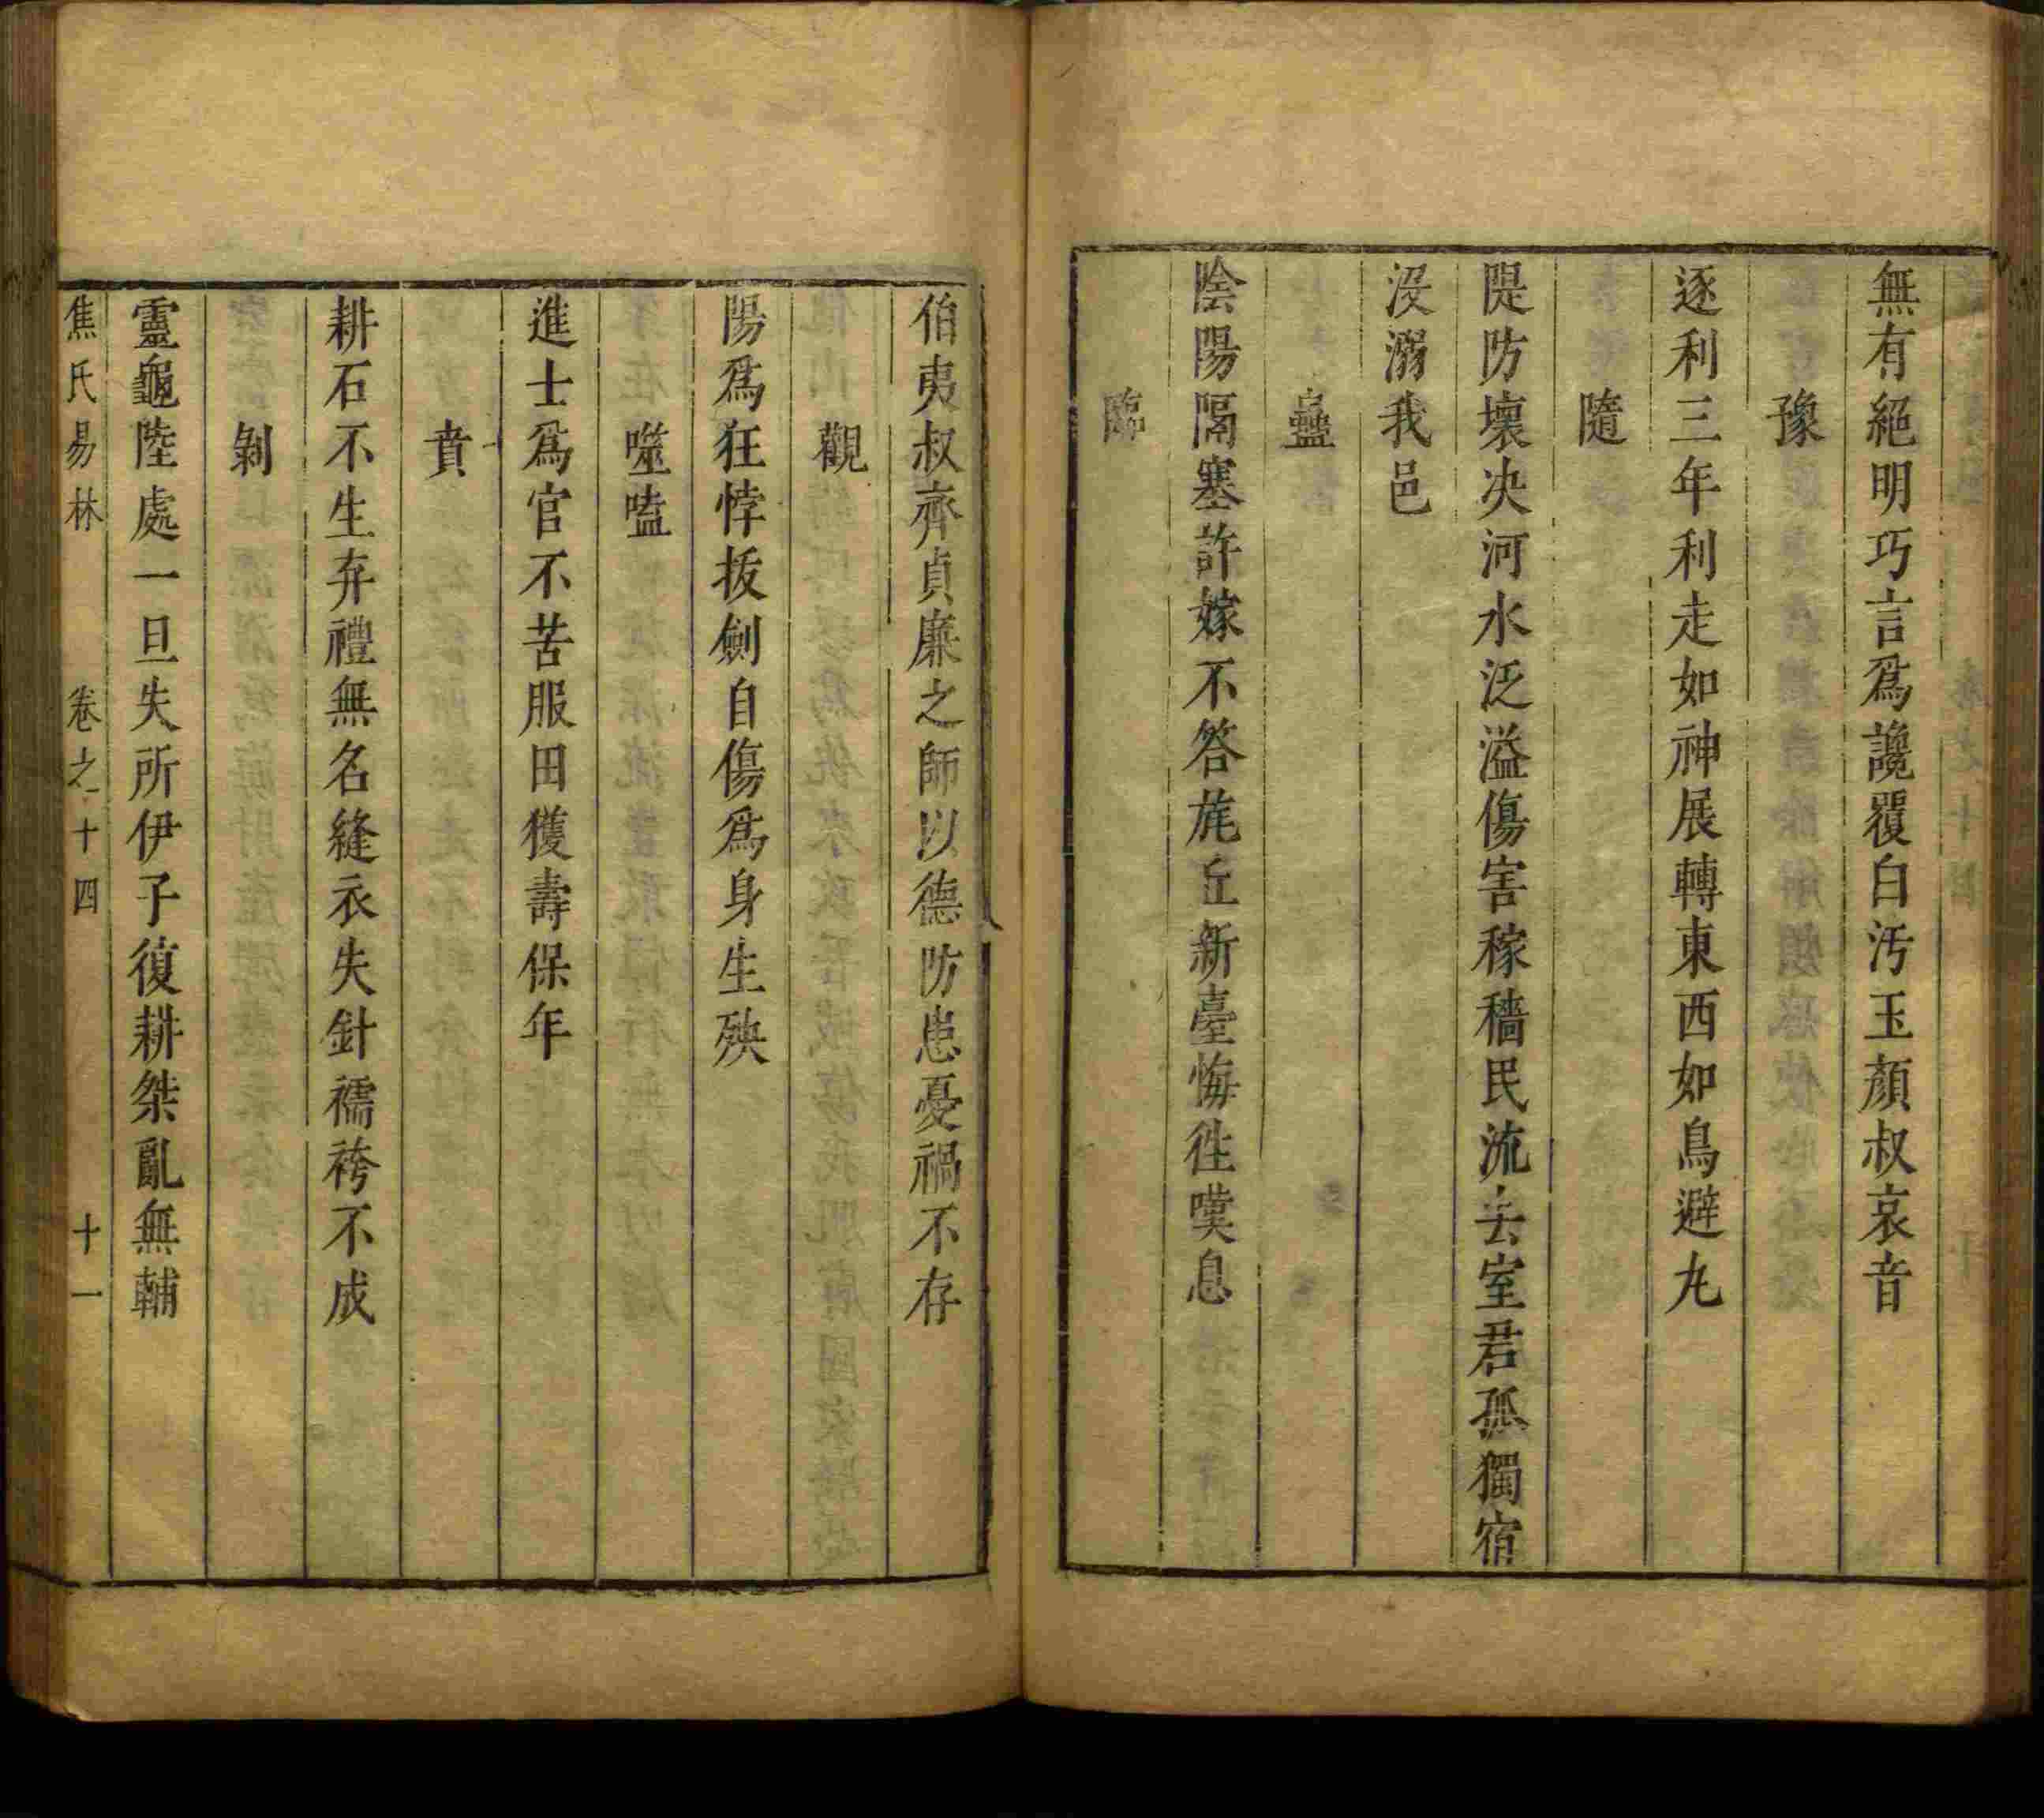 無有絕明巧言爲讒覆白汚玉顏叔哀音
豫
逐利三年利走如神展轉東西如鳥避丸
隨
隄防壞决河水泛溢傷害稼穡民流去室君孤獨宿
沒溺我邑
蠱
陰陽隔塞許嫁不答旄丘新臺悔徃嘆息
臨
伯夷叔齊貞廉之師以德防患憂禍不存
觀
陽爲狂悖拔劍自傷爲身生殃
噬嗑
進士爲官不苦服田獲壽保年
賁
耕石不生弃禮無名縫衣失針襦袴不成
剝
靈龜陸處一旦失所伊子復耕桀亂無輔
焦氏易林 卷之十四 十一